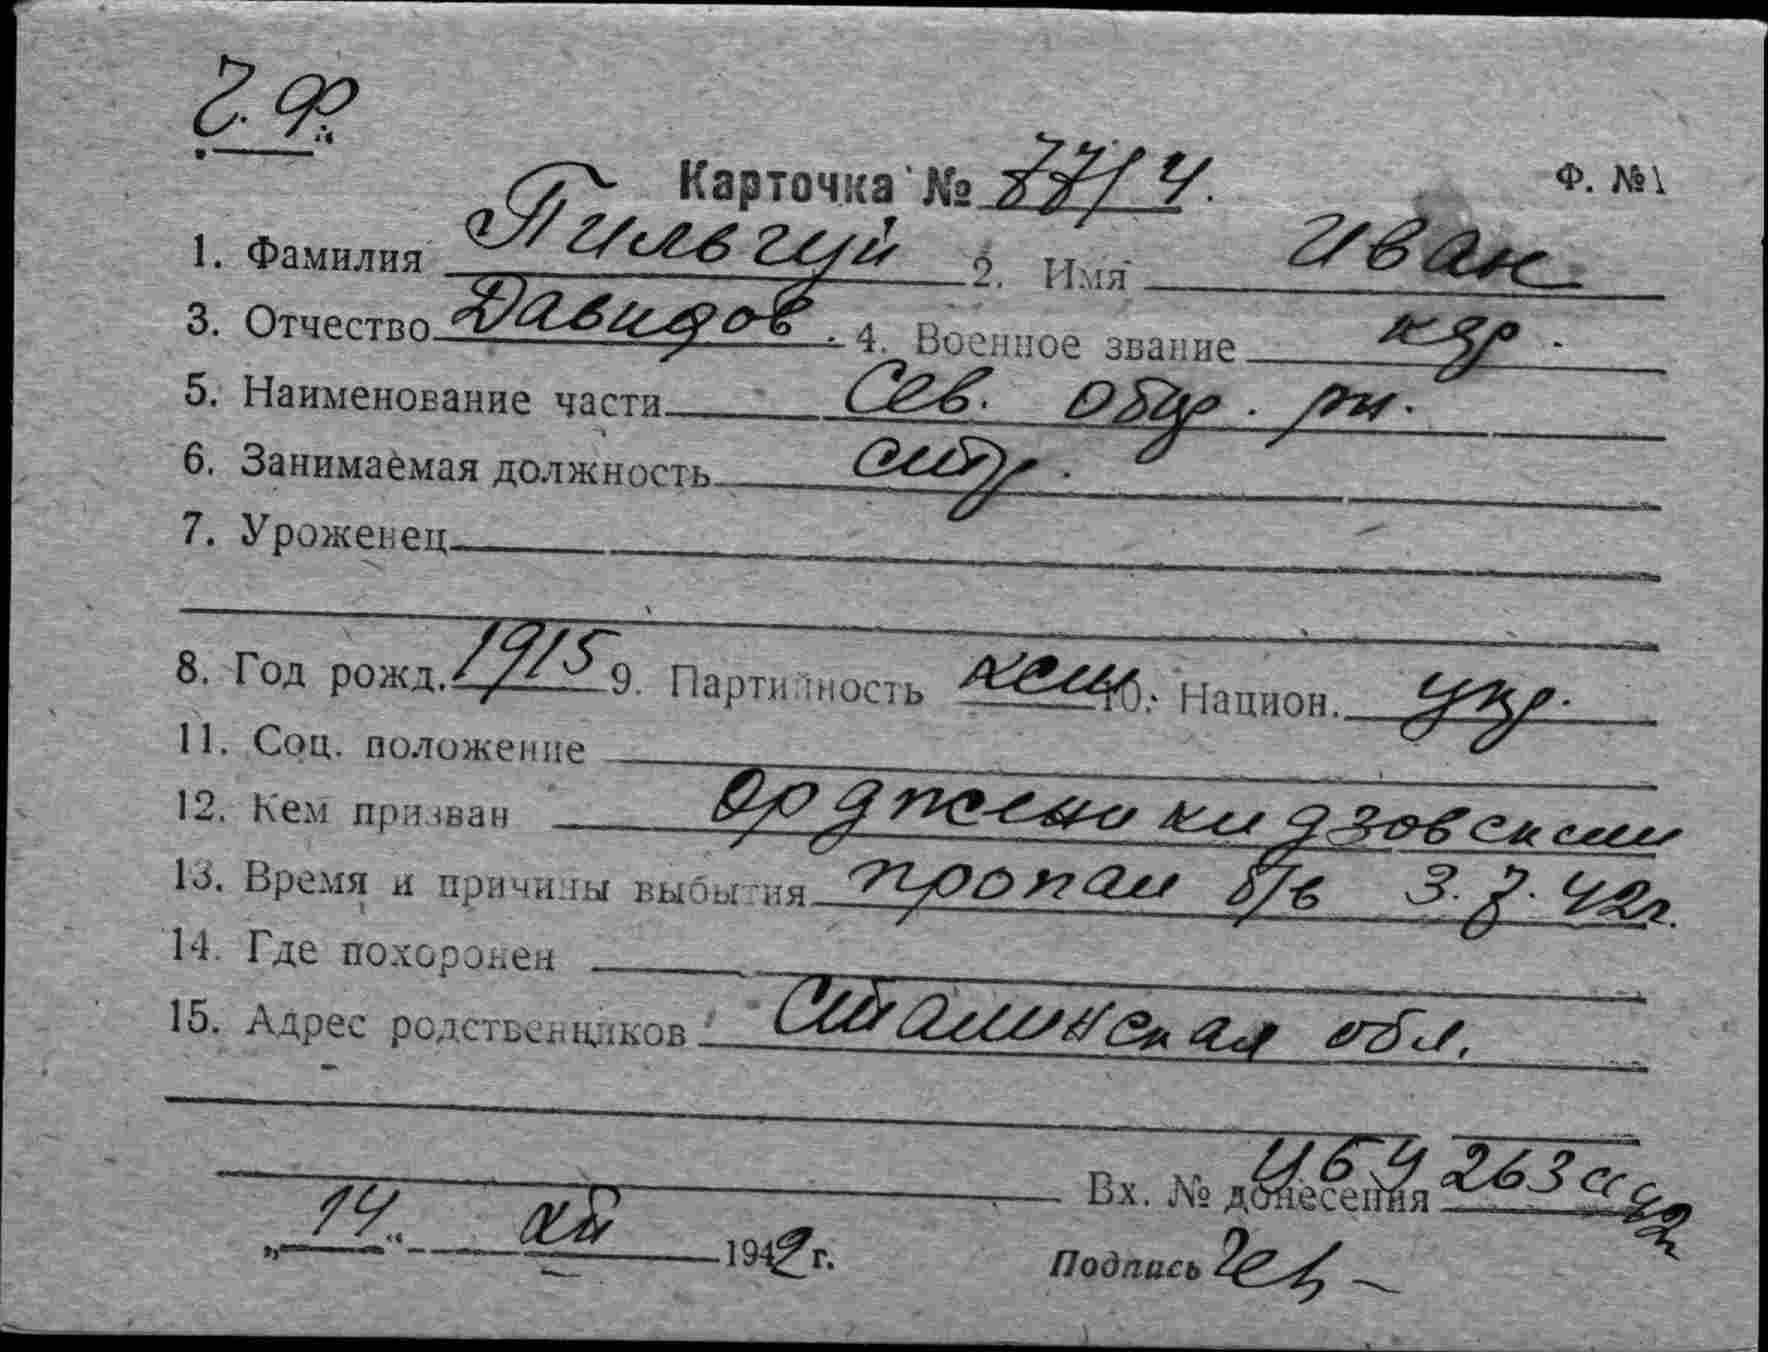 Ч.Ф.
Карточка № 7714.
Ф. №1
1. Фамилия Пильгуй 2. Имя Иван
3. Отчество Давидов. 4. Военное звание кдр.
5. Наименование части Сев. обур. рн.
6. Занимаемая должность
7. Уроженец
8. Год рожд. 1915 9. Партийность 10. Национ. укр.
11. Соц. положение
12. Кем призван Орджоникидзовским
13. Время и причины выбытия пропал б/в 3.7.42г.
14. Где похоронен
15. Адрес родственников Сталинская обл.
Вх. № донесения 263
„14“ 1942 г. Подпись